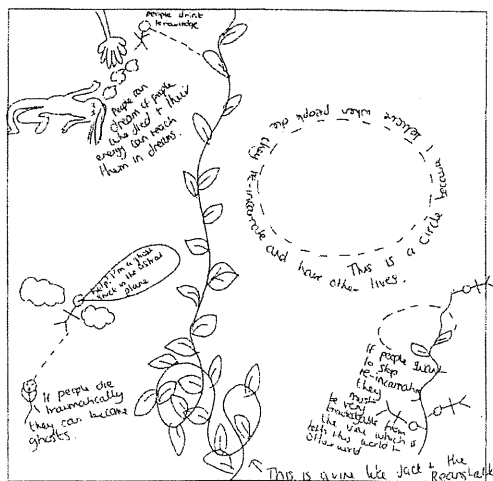 people drink
knowledge
People can
dream of people
who died + their
energy can teach
them in dreams.
This is a circle because
believe when people die they re-incarnate and have other lives.
help, I'm a ghost
stuck in the astral
plane
If people die
traumatically
they can become
ghosts.
If people want
to stop
re-incarnating
they
must
be very
knowledgable from
the vine which is
both this world +
other world
This is a vine like Jack + the
Beanstalk